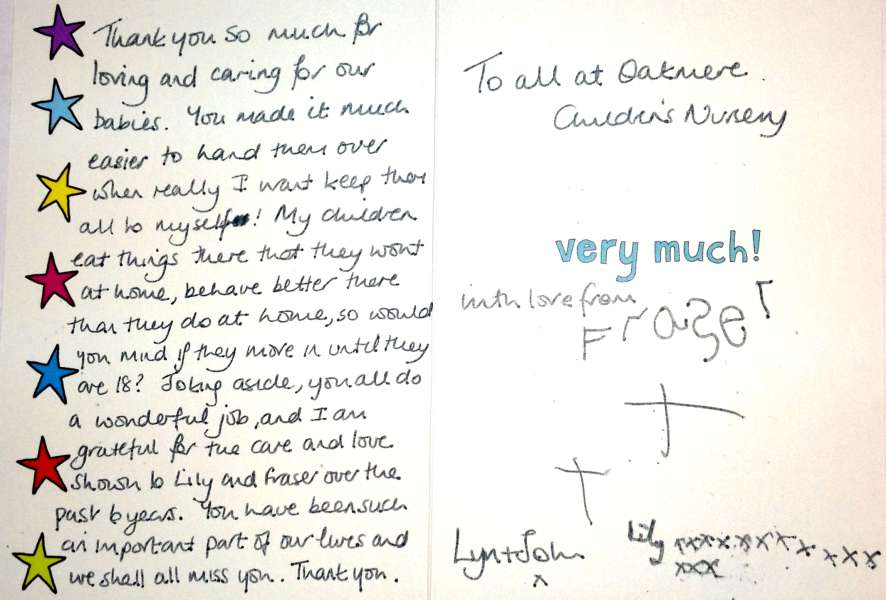 Thank you so much for
loving and caring for our
babies. You made it much
easier to hand them over
when really I want keep them
all to myself! My children
eat things there that they wont
at home, behave better there
than they do at home, so would
you mind if they move in until they
are 18? Joking aside, you all do
a wonderful job, and I am
grateful for the care and love
shown to Lily and Fraser over the
past 6 years. You have been such
an important part of our lives and
we shall all miss you. Thank you.
To all at Oakmere
Children's Nursery
very much!
with love from
Fraser
Lyn + John
x
Lily xxxxxxxxxxx
xxx